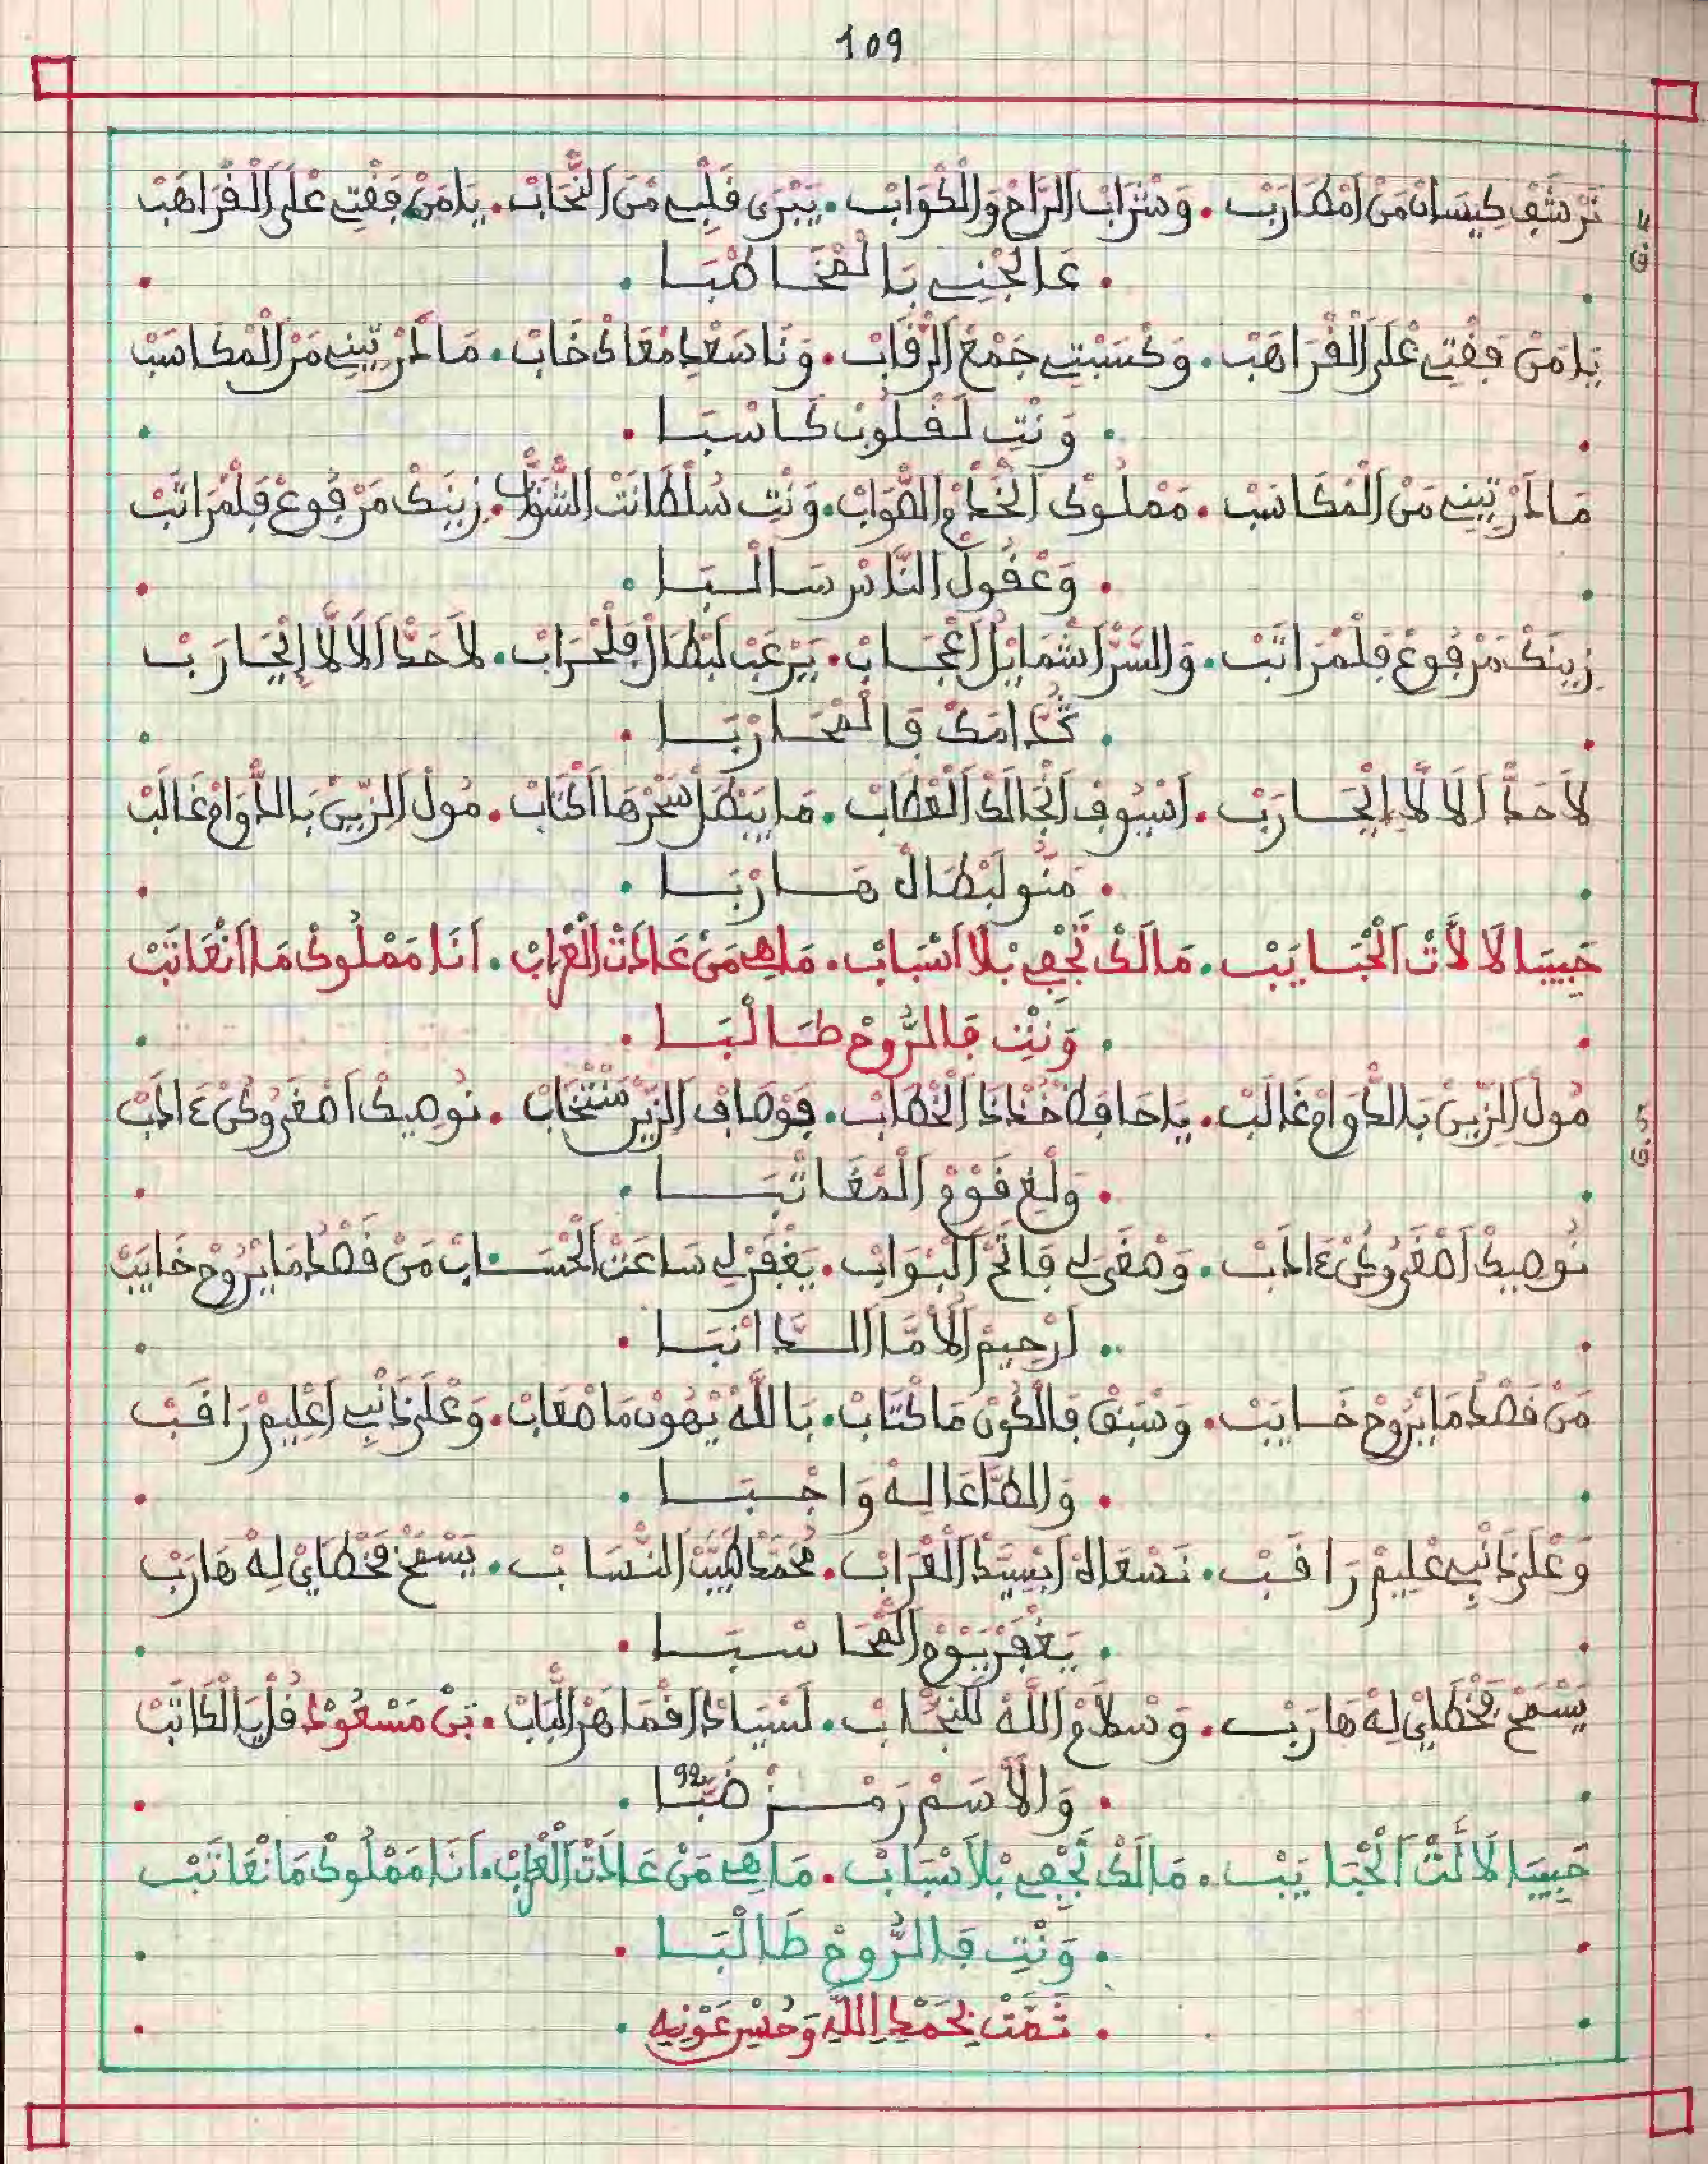 109
تَرْشَفْ كِيسَانْ مَنْ أَمْطَارَبْ . وَشْرَابْ الرَّاحْ وَالْكْوَابْ . يَبْرَى قَلْبِي مَنْ النْحَابْ . يَامَنْ فَقْتِي عْلَى الْقْرَاهَبْ
G. 4
. عَالجْنِي بَالْمْخَاطْبَا .
يَامَنْ فَقْتِي عْلَى الْقْرَاهَبْ . وَكْسَبْتِي جَمْعْ الرْقَابْ . وَنَا سَعْدِي مْعَاكْ خَابْ . مَالَكْ تِيهِي مَنْ الْمْكَاسَبْ
. وَنْتِ لَقْلُوبْ كَاسْبَا .
مَنْ الْمْكَاسَبْ . مَمْلُوكْ الْخَطَا وَالصْوَابْ . وَنْتِ سُلْطَانَتْ الشَّبَابْ . زِينَكْ مَرْفُوعْ فَلْمْرَاتَبْ
. وَعْقُولْ النَّاسْ سَالْبَا .
زِينَكْ مَرْفُوعْ فَلْمْرَاتَبْ . وَالسَّرّْ اشْمَايْلْ اعْجَابْ . يَرْعَبْ لَبْطَالْ فَلْحْرَابْ . لَاحَدّْ الَالَّا إيْحَارَبْ
. قُدَّامَكْ فَالْمْحَارْبَا .
لَاحَدّْ الَالَّا إيْحَارَبْ . اسْيُوفْ انْجَالَكْ الْعْطَابْ . مَا يَبْطَلْ سْحَرْهَا اكْتَابْ . مُولْ الزِّينْ بَالدّْوَامْ غَالَبْ
. مَنُّو لَبْطَالْ هَارْبَا .
حَبِيبَا لَالَّاتْ الْحْبَايَبْ . مَالَكْ تَجْفِي بْلَا اسْبَابْ . مَاهِي مَنْ عَادَتْ الْعْرَابْ . أَنَا مَمْلُوكْ مَا انْعَاتَبْ
. وَنْتِ فَالرُّوحْ طَالْبَا .
مُولْ الزِّينْ بَالدّْوَامْ غَالَبْ . يَا حَافَظْ خُدْ ذَا الْخْطَابْ . فَوْصَافْ الزِّينْ مَنْتْخَابْ . نُوصِيكْ
G. 5
. وَلْغِي قَوْمْ الْمْعَاتْبَا .
نُوصِيكْ . فَاتَحْ الْبْوَابْ . يَغْفَرْ لِي سَاعَتْ الْحْسَابْ مَنْ قَصْدُ مَا يْرُوحْ خَايَبْ
. ارْحِيمْ الْأُمَّا الدَّانْبَا .
مَنْ قَصْدُ مَا يْرُوحْ خَايَبْ . وَسْبَقْ فَالْكُونْ مَا كْتَابْ . بَاللَّهْ يْهُونْ مَا صْعَابْ . وَعْلَى ذَانْبِي اعْلِيمْ رَاقَبْ
. وَالطَّاعَا لِهْ وَاجْبَا .
وَعْلَى ذَانْبِي عْلِيمْ رَاقَبْ . نَسْعَاهْ ابْسِيدْ الْعْرَابْ . مُحَمَّدْ طَيَّبْ النّْسَابْ . يَسْمَحْ فَخْطَايْ لِهْ هَارَبْ
. يَغْفَرْ يَوْمْ الْمْحَاسْبَا .
يَسْمَحْ فَخْطَايْ لِهْ هَارَبْ . وَسْلَامْ اللَّهْ لَلنّْجَابْ . لَسْيَادْ اقْمَاهَرْ الْبَابْ . بَنْ مَسْعُودْ قُلْ يَا الْكَاتَبْ
. وَالْأَسَمْ رَمْزْ ضَبَّا 92 .
حَبِيبَا لَالَّتْ الْحْبَايَبْ . مَالَكْ تَجْفِي بْلَا سْبَابْ . مَاهِي مَنْ عَادَتْ الْعْرَابْ . أَنَا مَمْلُوكْ مَا نْعَاتَبْ
. وَنْتِ فَالرُّوحْ طَالْبَا .
. تَمَّتْ بِحَمْدِ اللَّهِ وَحُسْنِ عَوْنِهِ .